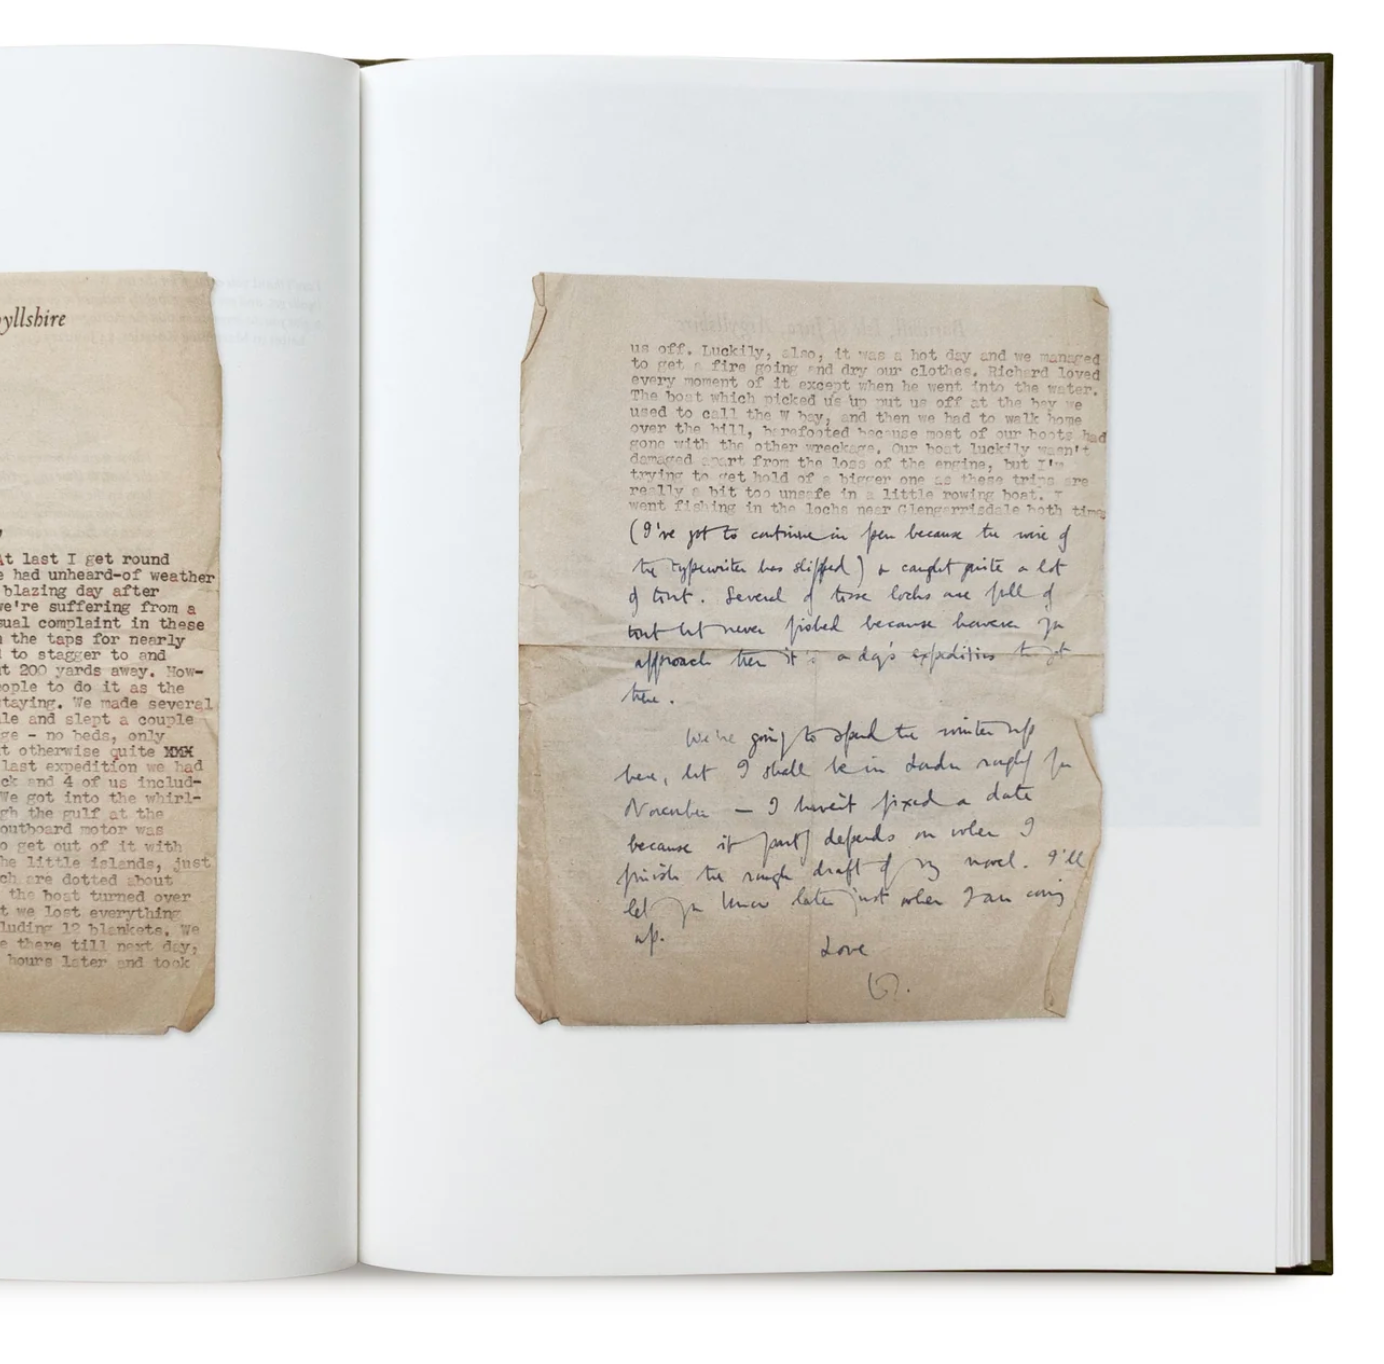 yllshire
,
At last I get round
e had unheard-of weather
blazing day after
we're suffering from a
sual complaint in these
n the taps for nearly
d to stagger to and
at 200 yards away. How-
eople to do it as the
staying. We made several
le and slept a couple
ge - no beds, only
t otherwise quite XMX
last expedition we had
ck and 4 of us includ-
We got into the whirl-
gh the gulf at the
outboard motor was
o get out of it with
he little islands, just
ch are dotted about
the boat turned over
t we lost everything
luding 12 blankets. We
e there till next day,
hours later and took
Barnhill, Isle of Jura, Argyllshire
us off. Luckily, also, it was a hot day and we managed
to get a fire going and dry our clothes. Richard loved
every moment of it except when he went into the water.
The boat which picked us up put us off at the bay we
used to call the W bay, and then we had to walk home
over the hill, barefooted because most of our boots had
gone with the other wreckage. Our boat luckily wasn't
damaged apart from the loss of the engine, but I'm
trying to get hold of a bigger one as these trips are
really a bit too unsafe in a little rowing boat. I
went fishing in the lochs near Glengarrisdale both times
(I've got to continue in pen because the wire of
the typewriter has slipped) & caught quite a lot
of trout. Several of these lochs are full of
trout but never fished because however you
approach them it's a day's expedition to get
there.
We're going to spend the winter up
here, but I shall be in London roughly for
November — I haven't fixed a date
because it partly depends on when I
finish the rough draft of my novel. I'll
let you know later just when I am coming
up.
Love